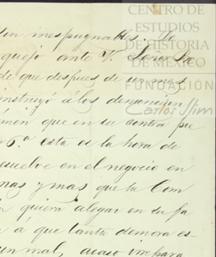 sin inespugnables. Me
quejo ante V.
de que despues de un mes
instruyó á los denuncian
men que en su dentro pu
6ª esta es la hora de
resuelve en el negocio en
mas y mas que la Com
quiera alegar en su fa
á que tanta demora es
un mal, acaso irrepara
CENTRO DE
ESTUDIOS
DE HISTORIA
DE MÉXICO
FUNDACIÓN
Carlos Slim